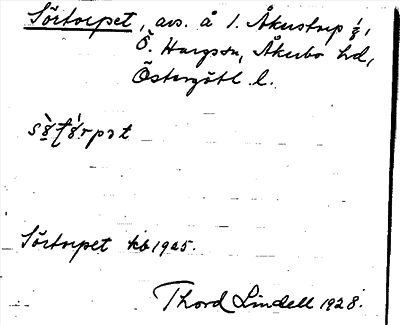 Sörtorpet, avs. å 1. Åkerstorp 1/8,
Ö. Hargson, Åkerbo hd,
Östergötl. l.
Sörtorpet kb 1925.
Thord Lindell 1928.